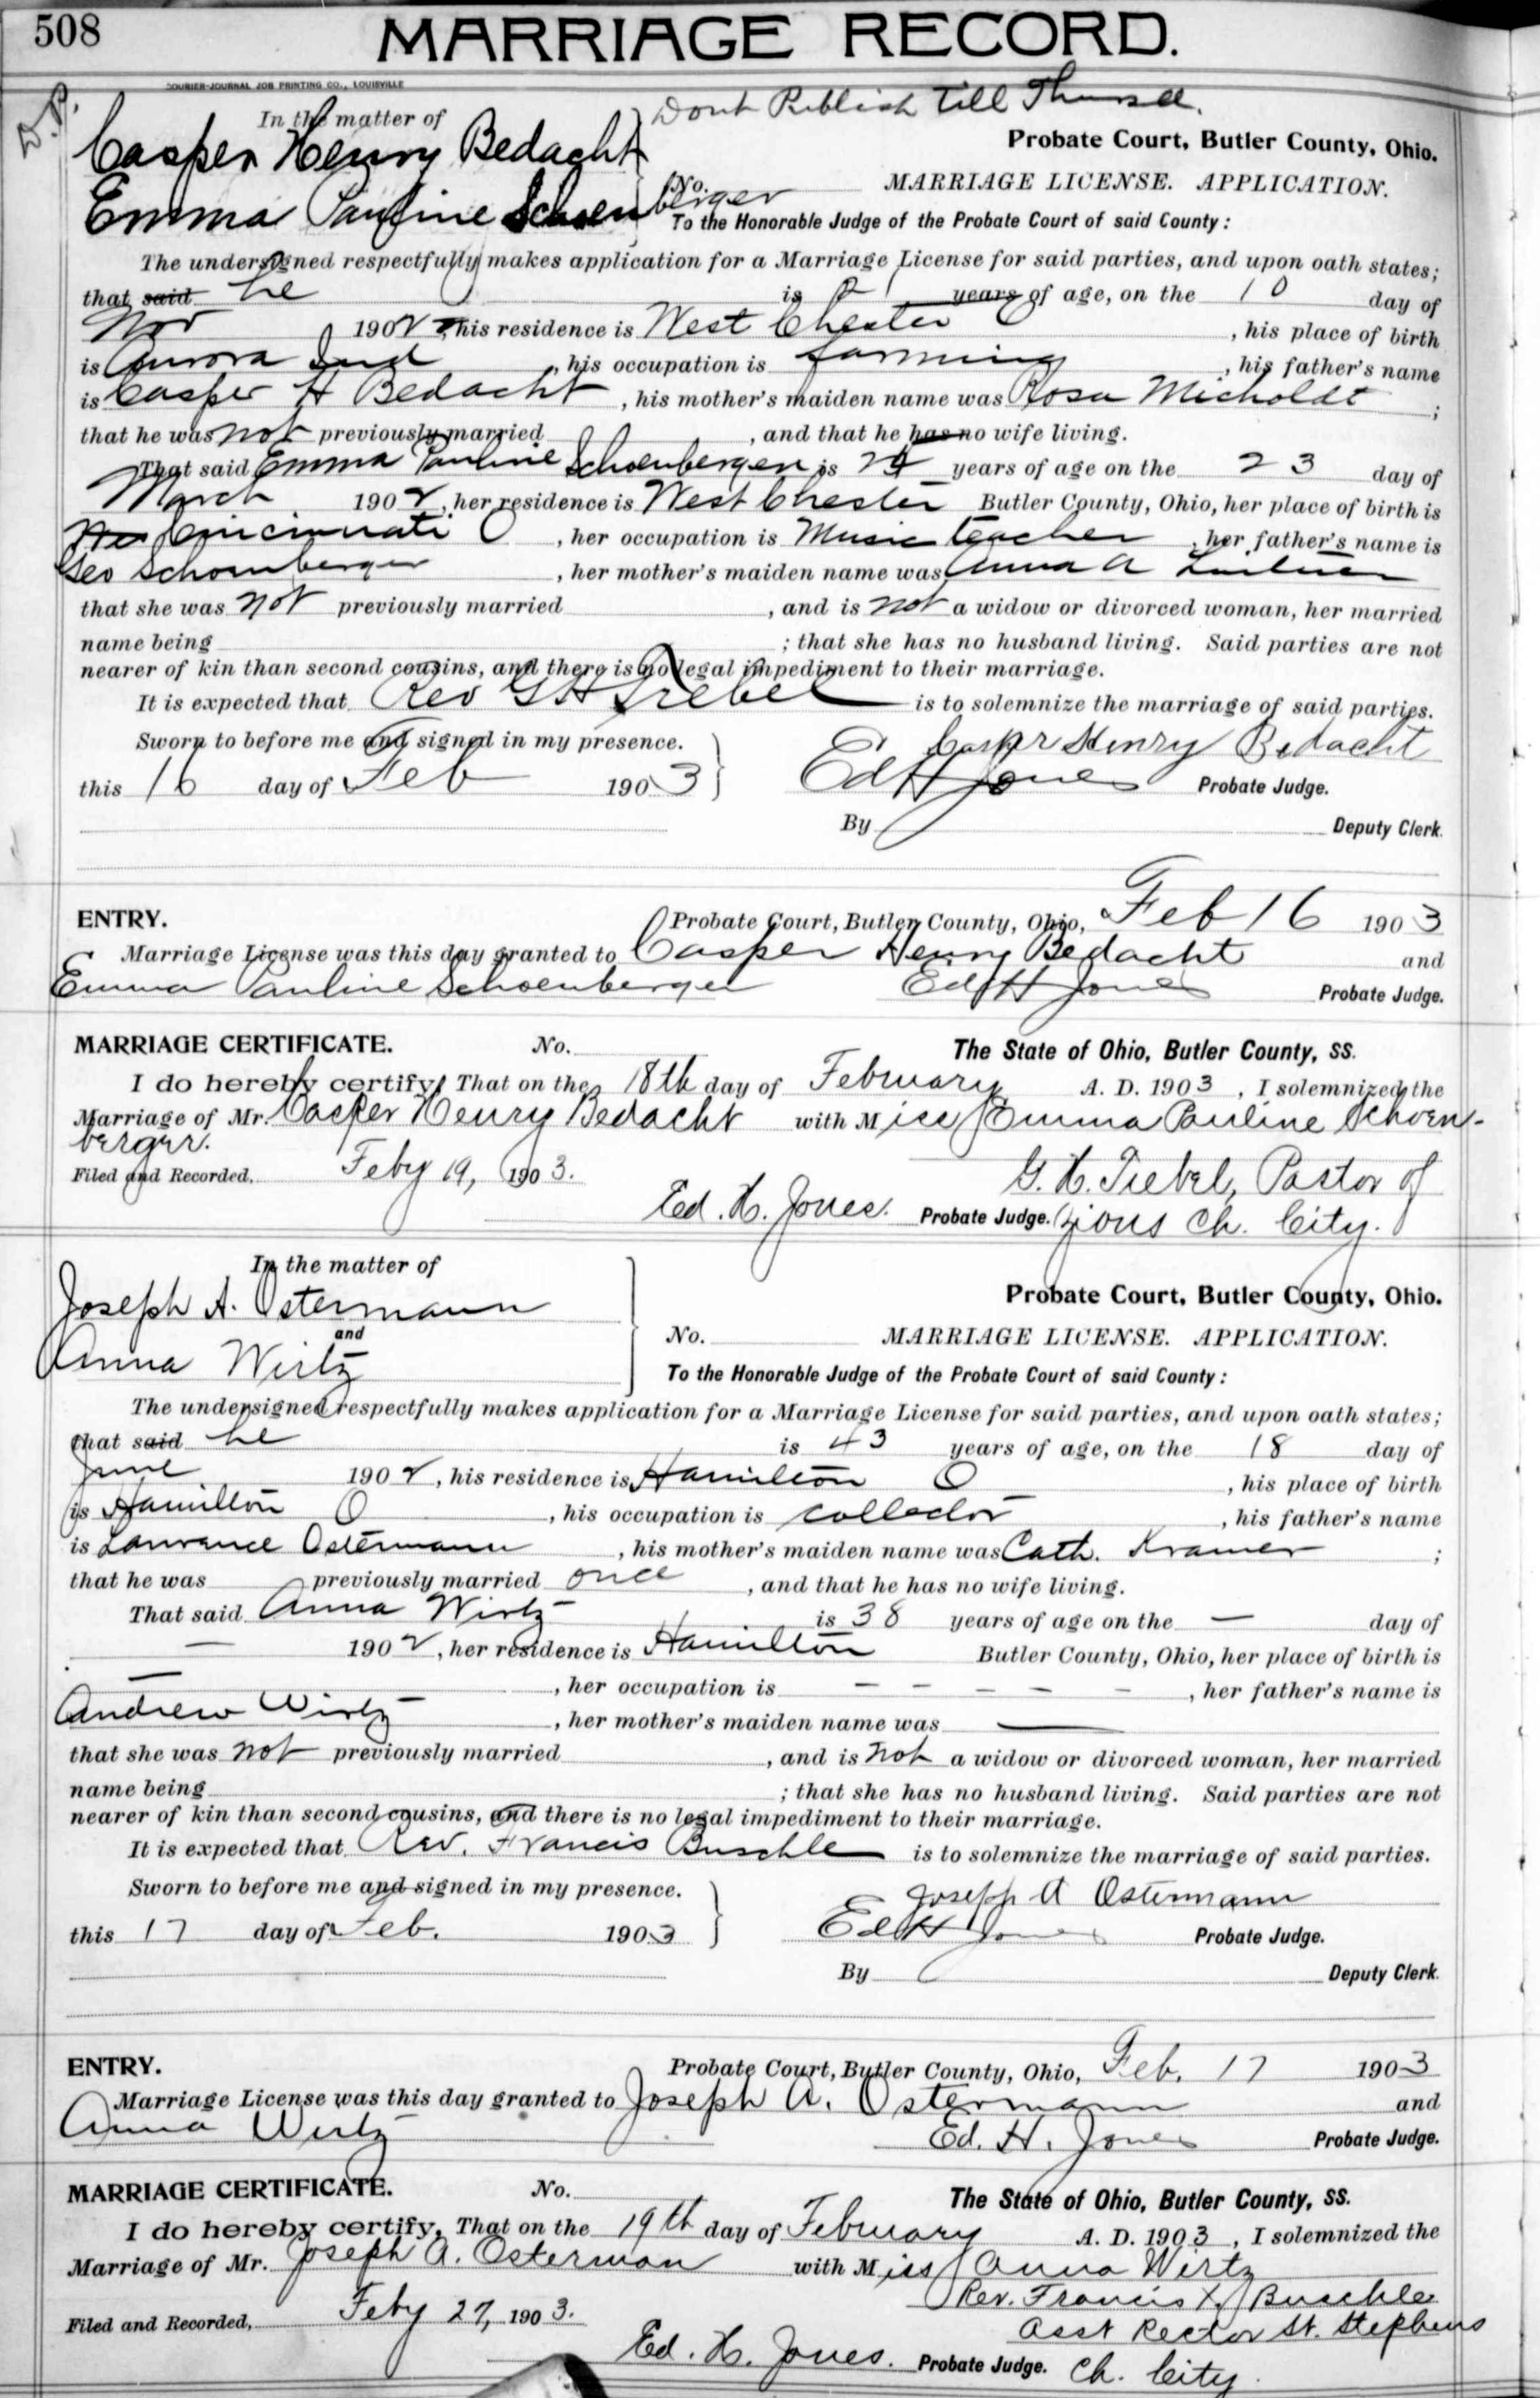 508
MARRIAGE RECORD.
COURIER-JOURNAL JOB PRINTING CO., LOUISVILLE
D.P.
Dont Publish till Thursd.
In the matter of
Casper Henry Bedacht
Probate Court, Butler County, Ohio.
No. MARRIAGE LICENSE. APPLICATION.
Emma Pauline Schoenberger
To the Honorable Judge of the Probate Court of said County:
The undersigned respectfully makes application for a Marriage License for said parties, and upon oath states;
that said he is years of age, on the 10 day of
Nov 1902, his residence is West Chester, his place of birth
is Aurora Ind, his occupation is farming, his father's name
is Casper H Bedacht, his mother's maiden name was Rosa Micholdt;
that he was not previously married, and that he has no wife living.
That said Emma Pauline Schoenberger is years of age on the 23 day of
March 1902, her residence is West Chester Butler County, Ohio, her place of birth is
Cincinnati O, her occupation is Music teacher, her father's name is
Geo Schoenberger, her mother's maiden name was Anna A
that she was not previously married, and is not a widow or divorced woman, her married
name being; that she has no husband living. Said parties are not
nearer of kin than second cousins, and there is no legal impediment to their marriage.
It is expected that Rev G H Trebel is to solemnize the marriage of said parties.
Sworn to before me and signed in my presence. Casper Henry Bedacht
this 16 day of Feb 1903 Ed H Jones Probate Judge.
By Deputy Clerk.
ENTRY. Probate Court, Butler County, Ohio, Feb 16 1903
Marriage License was this day granted to Casper Henry Bedacht and
Emma Pauline Schoenberger Ed H Jones Probate Judge.
MARRIAGE CERTIFICATE. No. The State of Ohio, Butler County, SS.
I do hereby certify, That on the 18th day of February A. D. 1903, I solemnized the
Marriage of Mr. Casper Henry Bedacht with Miss Emma Pauline Schoen-
berger.
Filed and Recorded, Feby 19, 1903. G. H. Trebel, Pastor of
Ed. H. Jones. Probate Judge. Zions Ch. City.
In the matter of
Joseph A. Ostermann
Probate Court, Butler County, Ohio.
and
No. MARRIAGE LICENSE. APPLICATION.
Anna Wirtz
To the Honorable Judge of the Probate Court of said County:
The undersigned respectfully makes application for a Marriage License for said parties, and upon oath states;
that said he is 43 years of age, on the 18 day of
June 1902, his residence is Hamilton O, his place of birth
is Hamilton O, his occupation is collector, his father's name
is Lawrance Ostermann, his mother's maiden name was Cath. Kramer;
that he was previously married once, and that he has no wife living.
That said Anna Wirtz is 38 years of age on the — day of
— 1902, her residence is Hamilton Butler County, Ohio, her place of birth is
—, her occupation is - - - - -, her father's name is
Andrew Wirtz, her mother's maiden name was —
that she was not previously married, and is not a widow or divorced woman, her married
name being; that she has no husband living. Said parties are not
nearer of kin than second cousins, and there is no legal impediment to their marriage.
It is expected that Rev. Francis Buschle is to solemnize the marriage of said parties.
Sworn to before me and signed in my presence. Joseph A Ostermann
this 17 day of Feb. 1903 Ed H Jones Probate Judge.
By Deputy Clerk.
ENTRY. Probate Court, Butler County, Ohio, Feb. 17 1903
Marriage License was this day granted to Joseph A. Ostermann and
Anna Wirtz Ed. H. Jones Probate Judge.
MARRIAGE CERTIFICATE. No. The State of Ohio, Butler County, SS.
I do hereby certify, That on the 19th day of February A. D. 1903, I solemnized the
Marriage of Mr. Joseph A. Osterman with Miss Anna Wirtz
Rev. Francis X. Buschle
Filed and Recorded, Feby 27, 1903. Asst Rector St. Stephens
Ed. H. Jones. Probate Judge. Ch. City.